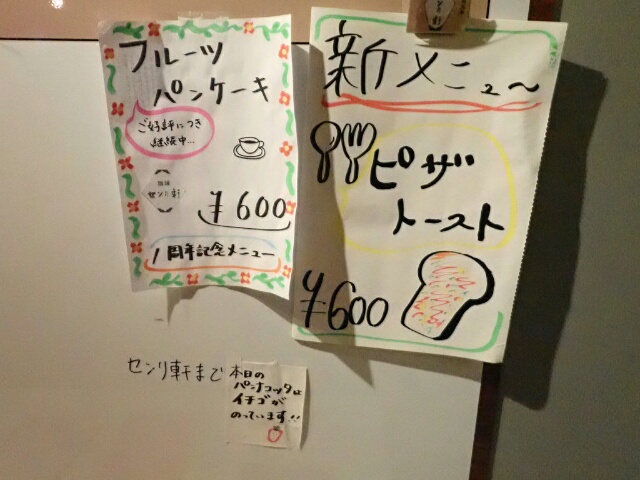 フルーツ
パンケーキ
ご好評につき
継続中…
珈琲
センリ軒
¥600
1周年記念メニュー
新メニュ〜
ピザ
トースト
¥600
センリ軒まで
本日の
パンナコッタは
イチゴが
のっています!!